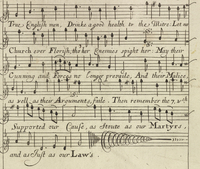 True English men, Drinke a good health to the Miter Let our
Church ever Florish, tho her Enemies spight her. May their
Cunning and Forces no longer prevaile, And their Malice,
as well as their Arguments, faile. Then remember the 7
Supported our Cause, as stoute as our Martyrs,
and as Just as our Laws